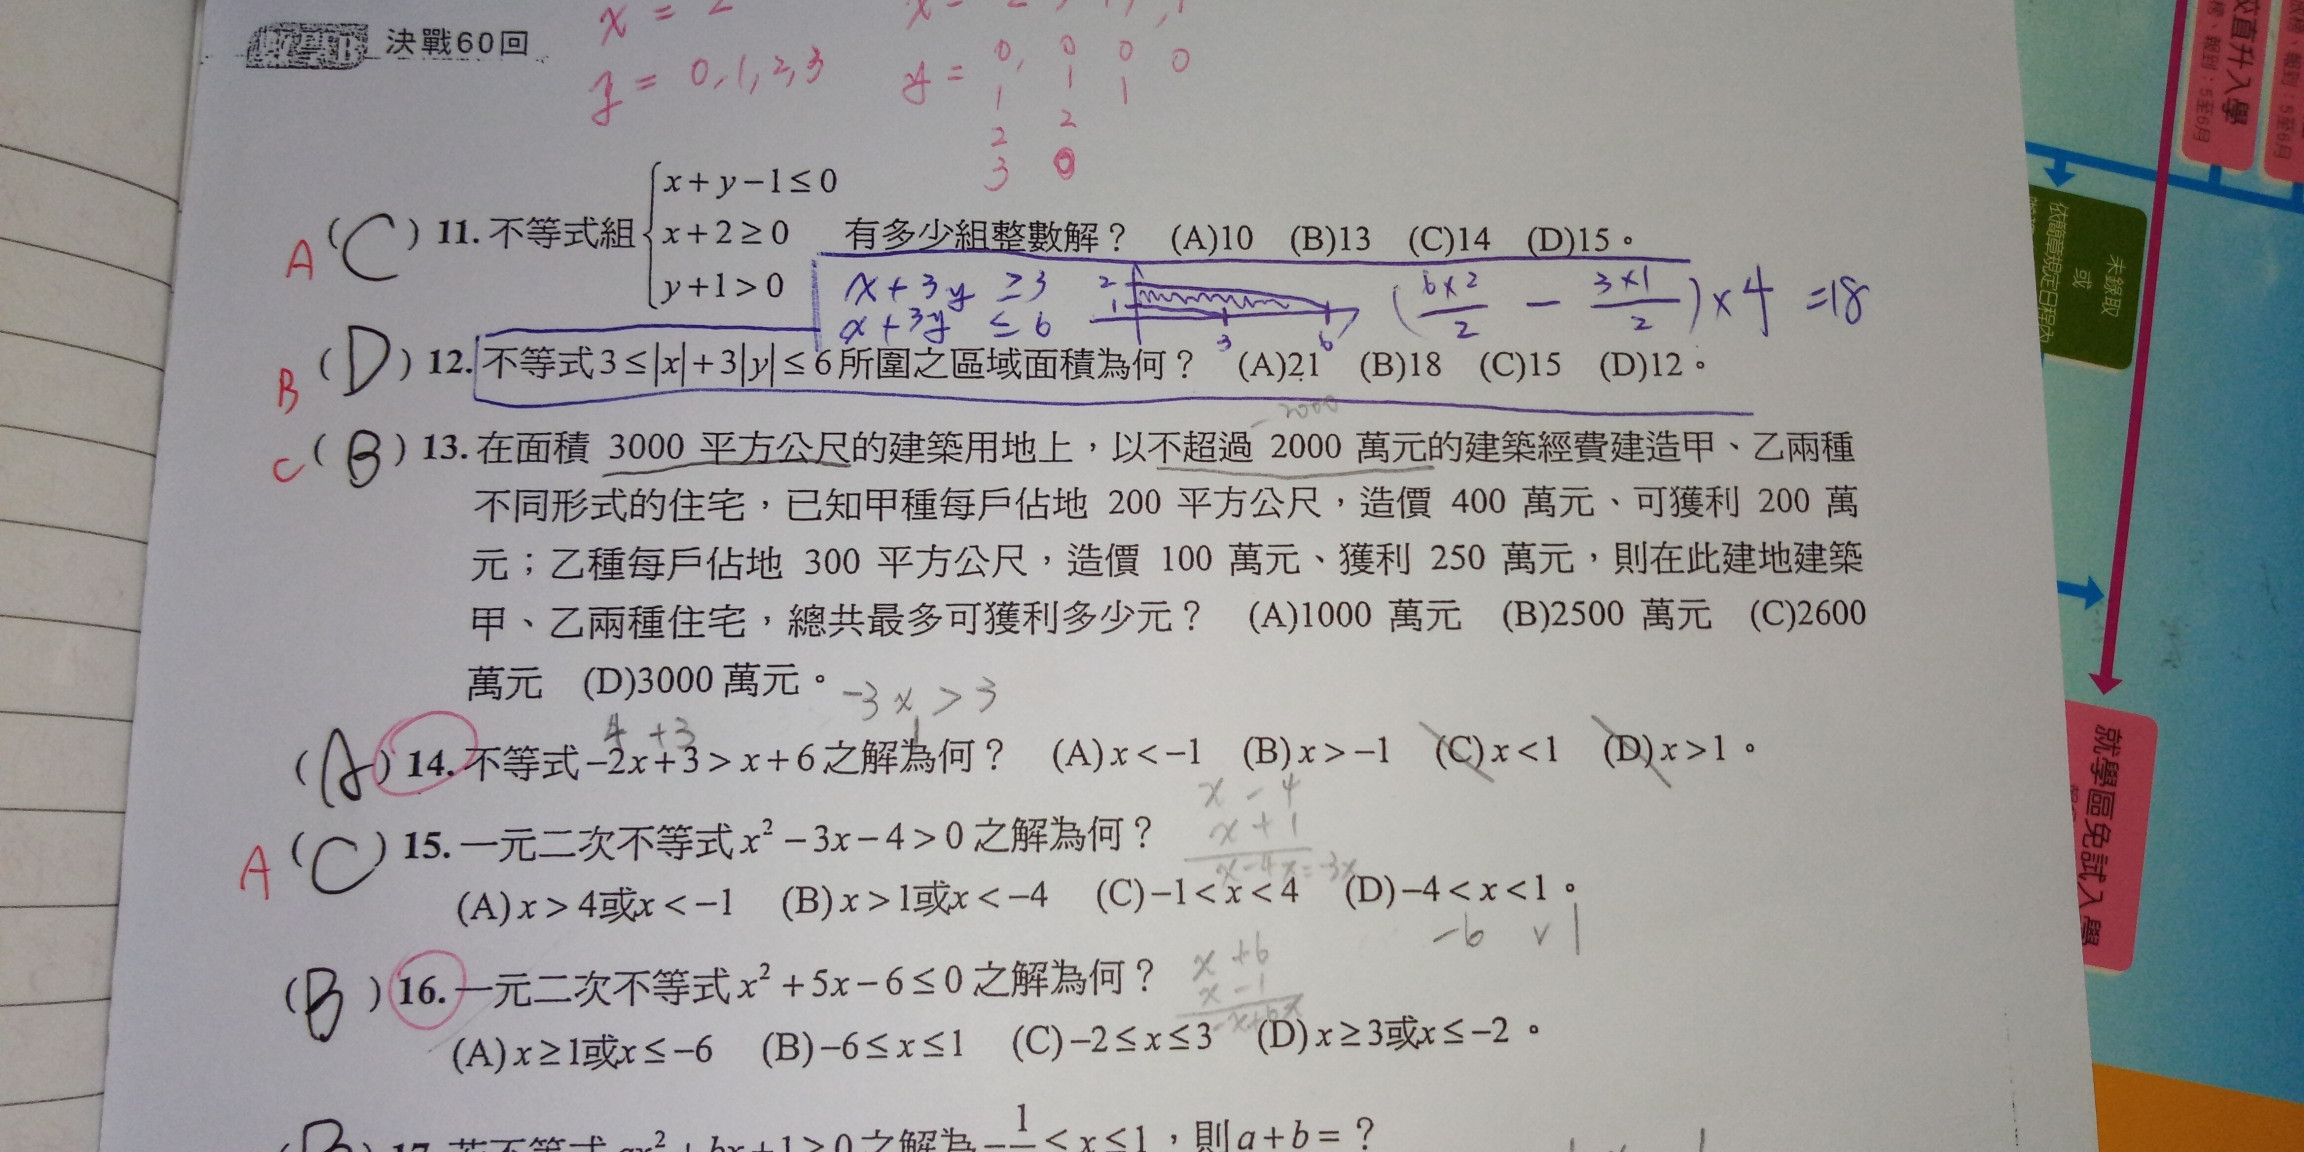 數學B 決戰60回
x = 2
y = 0,1,2,3
y = 0, 0 0 0
1 1 1
2 2
3 0
x+y−1≤0
A (C) 11. 不等式組 x+2≥0 有多少組整數解? (A)10 (B)13 (C)14 (D)15。
y+1>0
x+3y ≥3
x+3y ≤6
2
1
3 6
(6×2/2 − 3×1/2)×4 =18
B (D) 12. 不等式3≤|x|+3|y|≤6所圍之區域面積為何? (A)21 (B)18 (C)15 (D)12。
2000
C (B) 13. 在面積 3000 平方公尺的建築用地上,以不超過 2000 萬元的建築經費建造甲、乙兩種
不同形式的住宅,已知甲種每戶佔地 200 平方公尺,造價 400 萬元、可獲利 200 萬
元;乙種每戶佔地 300 平方公尺,造價 100 萬元、獲利 250 萬元,則在此建地建築
甲、乙兩種住宅,總共最多可獲利多少元? (A)1000 萬元 (B)2500 萬元 (C)2600
萬元 (D)3000 萬元。
−3x > 3
4 +3 1
(A) 14. 不等式−2x+3>x+6之解為何? (A)x<−1 (B)x>−1 (C)x<1 (D)x>1。
x − 4
x + 1
x−4x=−3x
A (C) 15. 一元二次不等式x²−3x−4>0之解為何?
(A)x>4或x<−1 (B)x>1或x<−4 (C)−1<x<4 (D)−4<x<1。
−6 v 1
x +6
x −1
−x+6x
(B) 16. 一元二次不等式x²+5x−6≤0之解為何?
(A)x≥1或x≤−6 (B)−6≤x≤1 (C)−2≤x≤3 (D)x≥3或x≤−2。
(B) 17. 若不等式ax²+bx+1≥0之解為−1 <x≤1,則a+b=?
校直升入學
報到:5至6月
未錄取
或
依簡章規定日程內
就學區免試入學